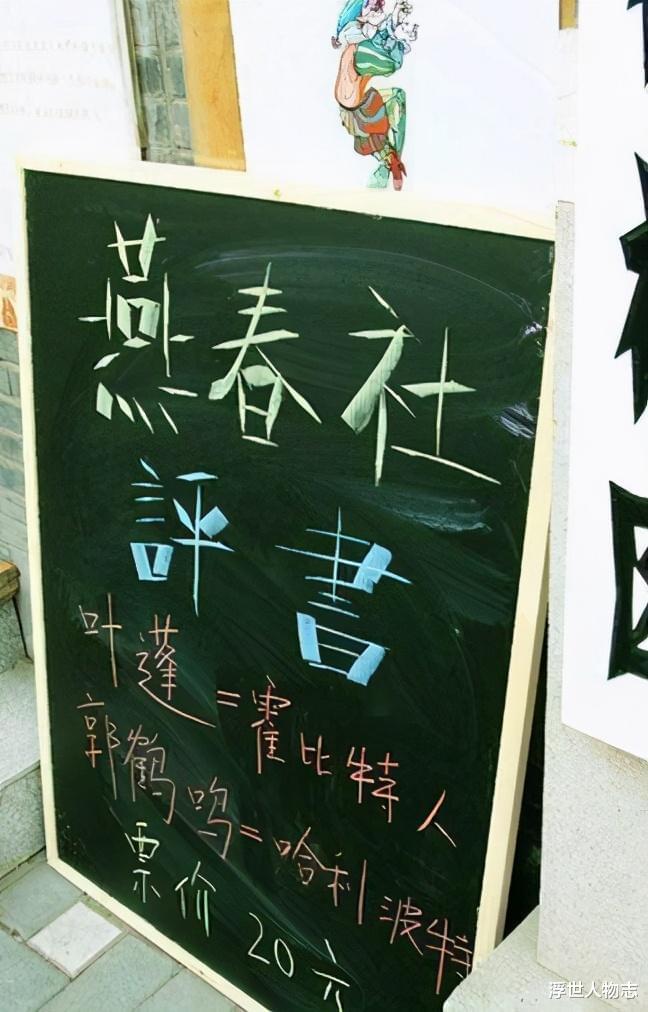 燕春社
評書
叶蓬=霍比特人
郭鹤鸣=哈利波特
票价20元
浮世人物志